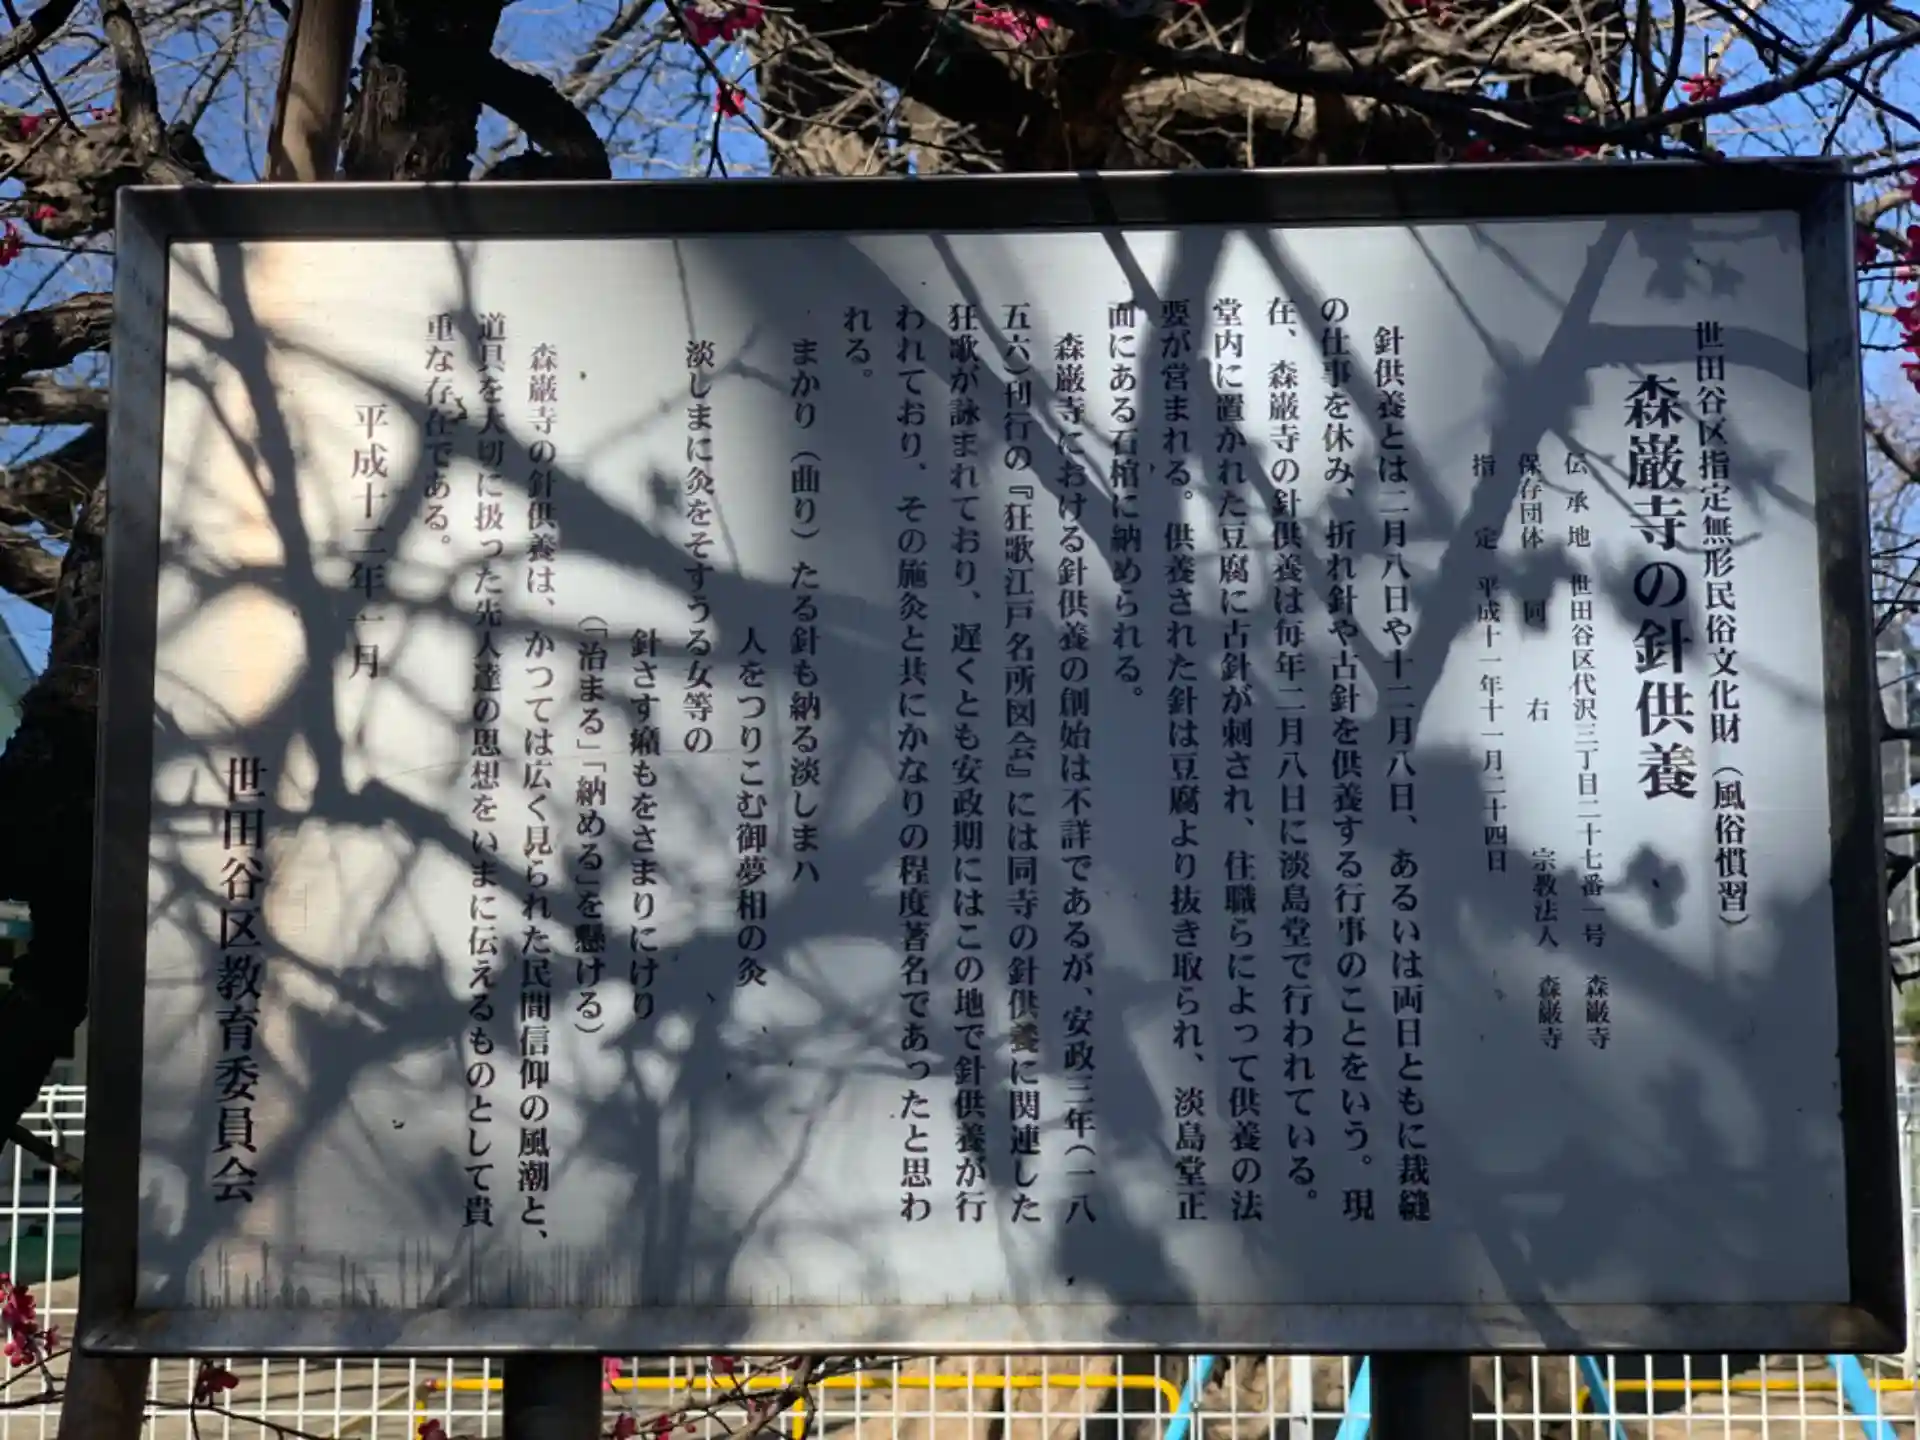 世田谷区指定無形民俗文化財（風俗慣習）
森巌寺の針供養
伝承地　世田谷区代沢三丁目二十七番一号　森巌寺
保存団体　同　右　宗教法人　森巌寺
指　定　平成十一年十一月二十四日
針供養とは二月八日や十二月八日、あるいは両日ともに裁縫
の仕事を休み、折れ針や古針を供養する行事のことをいう。現
在、森巌寺の針供養は毎年二月八日に淡島堂で行われている。
堂内に置かれた豆腐に古針が刺され、住職らによって供養の法
要が営まれる。供養された針は豆腐より抜き取られ、淡島堂正
面にある石棺に納められる。
森巌寺における針供養の創始は不詳であるが、安政三年（一八
五六）刊行の『狂歌江戸名所図会』には同寺の針供養に関連した
狂歌が詠まれており、遅くとも安政期にはこの地で針供養が行
われており、その施灸と共にかなりの程度著名であったと思わ
れる。
まかり（曲り）たる針も納る淡しまハ
人をつりこむ御夢相の灸
淡しまに灸をそすうる女等の
針さす癪もをさまりにけり
（「治まる」「納める」を懸ける）
森巌寺の針供養は、かつては広く見られた民間信仰の風潮と、
道具を大切に扱った先人達の思想をいまに伝えるものとして貴
重な存在である。
平成十二年二月
世田谷区教育委員会